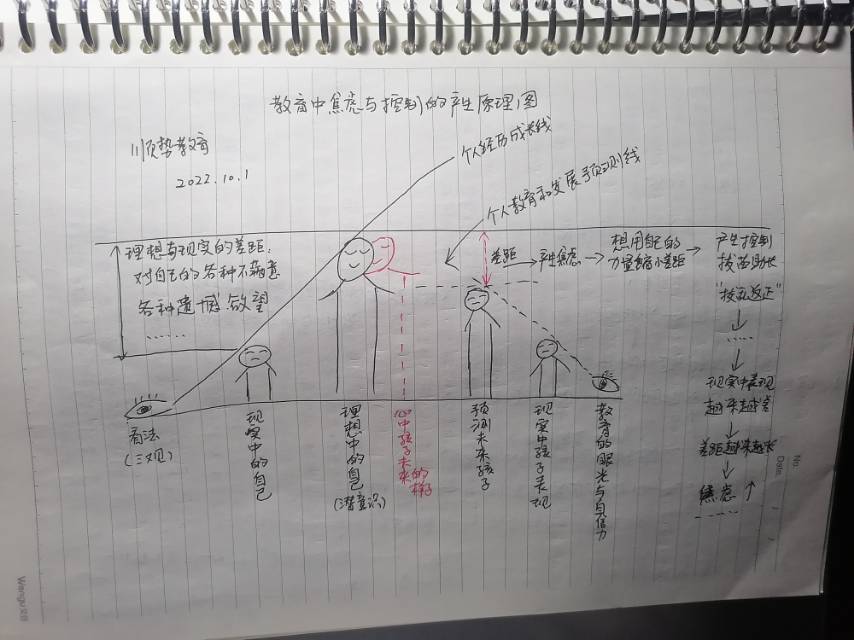 教育中焦虑与控制的产生原理图
顺势教育
2022.10.1
个人经历成长线
个人教育和发展预测线
理想与现实的差距,
对自己的各种不满意
各种遗憾、欲望
......
差距
产生焦虑
想用自己的
力量缩小差距
产生控制
拔苗助长
......
现实中表现
越来越差
差距越来越大
焦虑↑
......
看法
(三观)
现实中的自己
理想中的自己
(潜意识)
心中孩子未来的样子
预测未来孩子
现实中孩子表现
教育的眼光与自信力
No.
Date